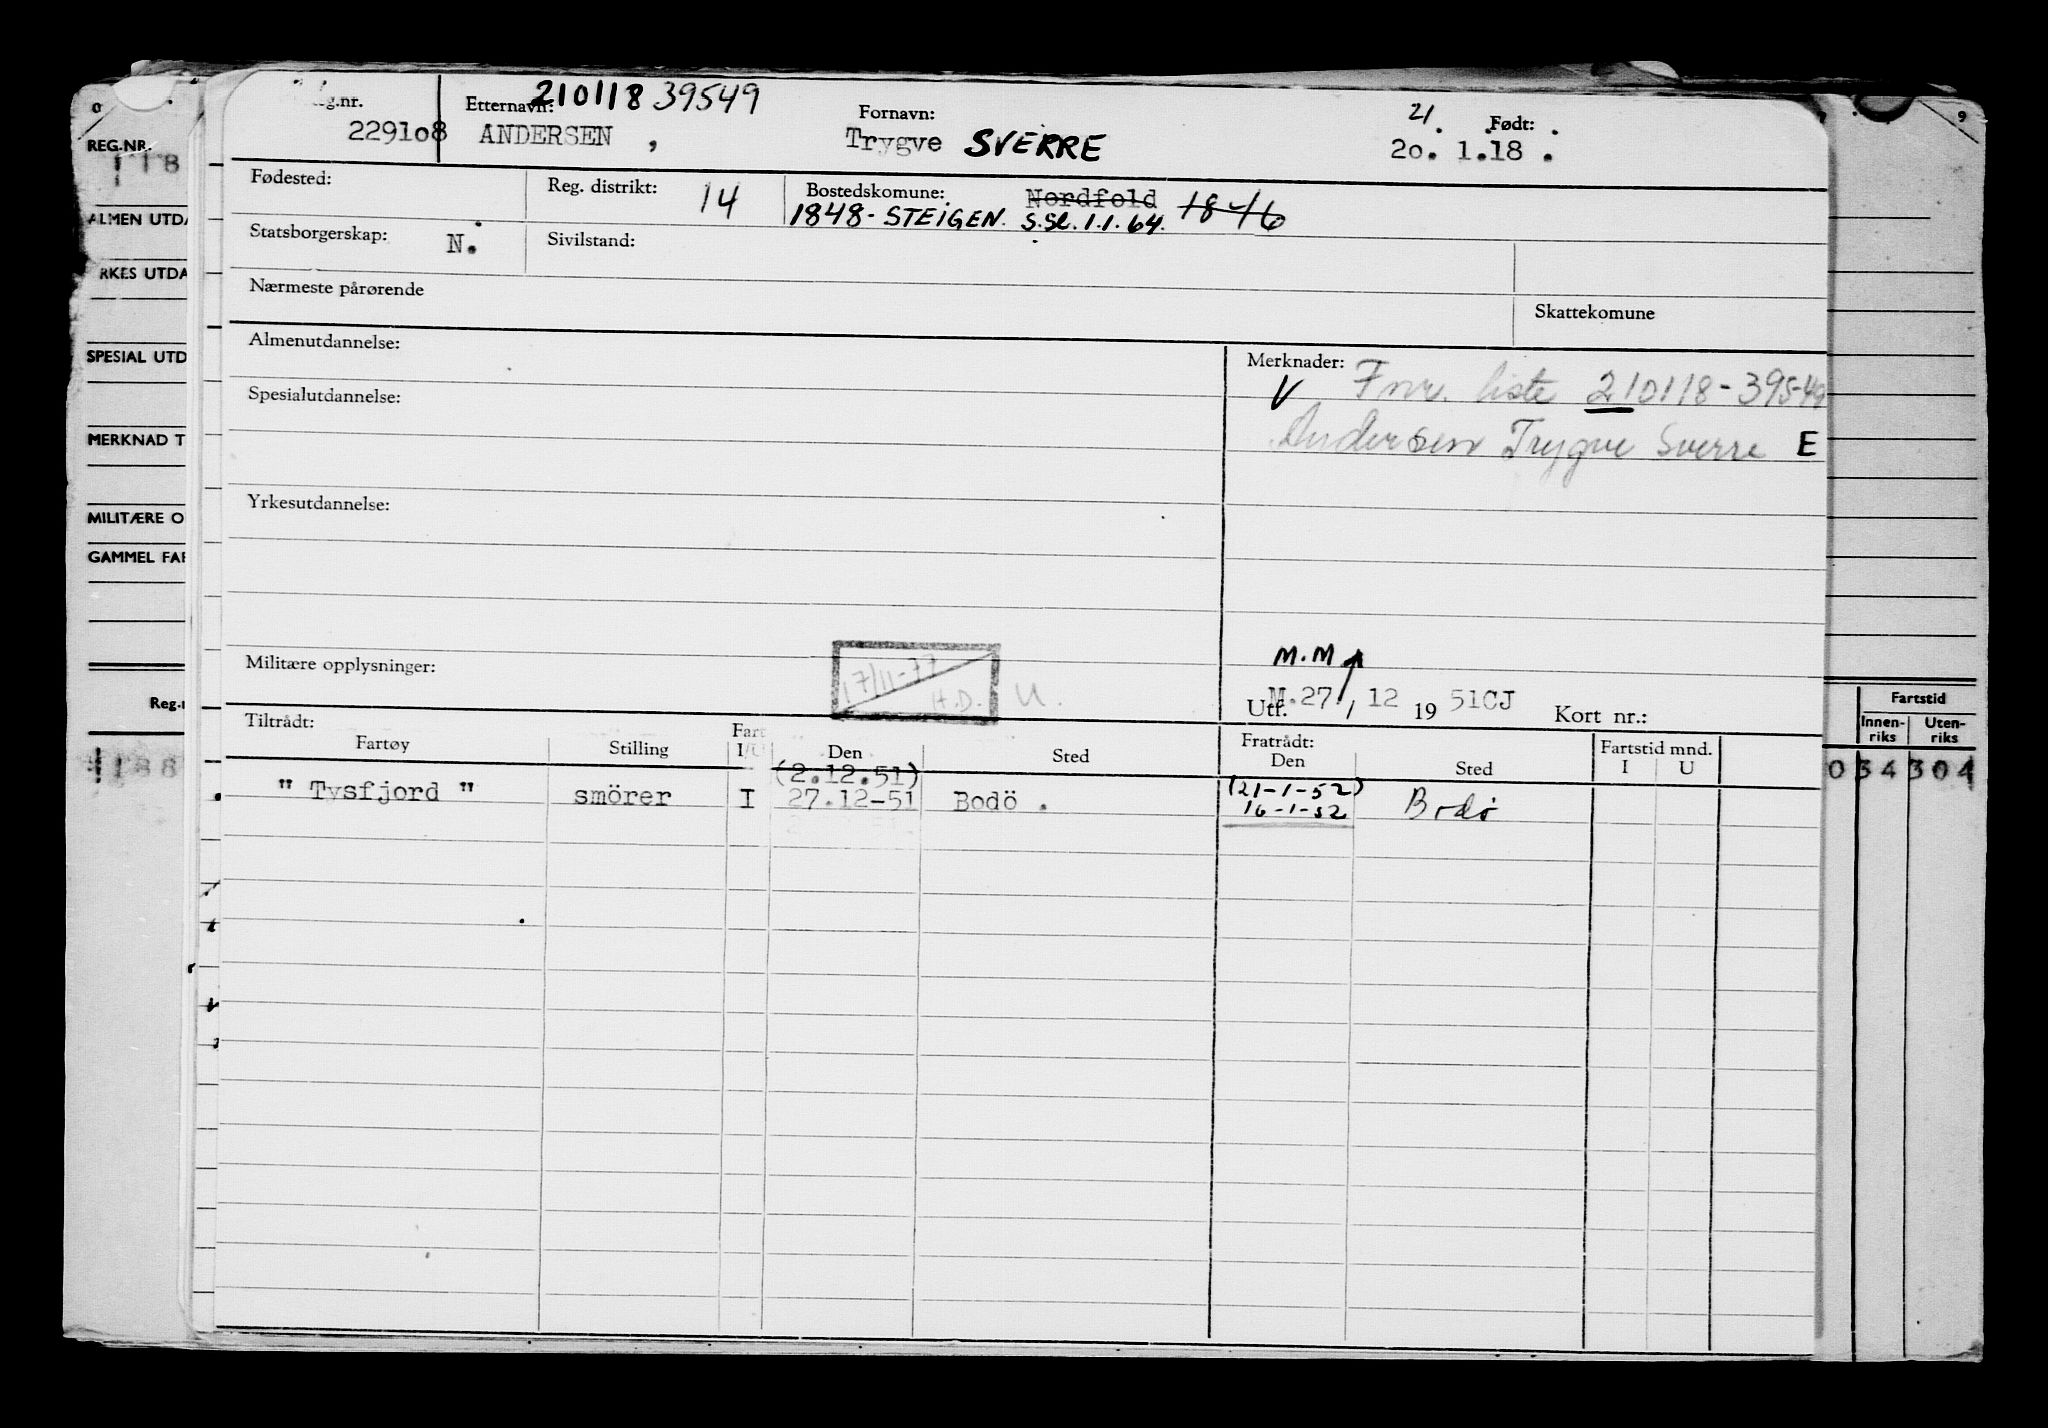 210118 39549
Reg.nr. Etternavn: Fornavn: 21. Født:
229108 ANDERSEN , Trygve SVERRE 20. 1.18 .
Fødested: Reg. distrikt: 14 Bostedskomune: Nordfold 1846
1848- STEIGEN. S.Sl. 1.1.64.
Statsborgerskap: N. Sivilstand:
Nærmeste pårørende
Skattekomune
Almenutdannelse: Merknader:
V Fnr. liste 210118-39549
Spesialutdannelse:
Andersen Trygve Sverre E
Yrkesutdannelse:
M.M
Militære opplysninger: 17/11-77 H.D. U.
Utf. M.27/ 12 19 51CJ Kort nr.:
Tiltrådt: Fratrådt: Fartstid mnd.
Fartøy Stilling Fart I/U Den Sted Den Sted I U
(2.12.51) (21-1-52)
" Tysfjord " smörer I 27.12-51 Bodö . 16-1-52 Bodö
REG.NR.
118
ALMEN UTDA
RKES UTDA
SPESIAL UTD
MERKNAD T
MILITÆRE O
GAMMEL FAR
Reg.n
1188
9
Fartstid
Innen-riks Uten-riks
0 34 304